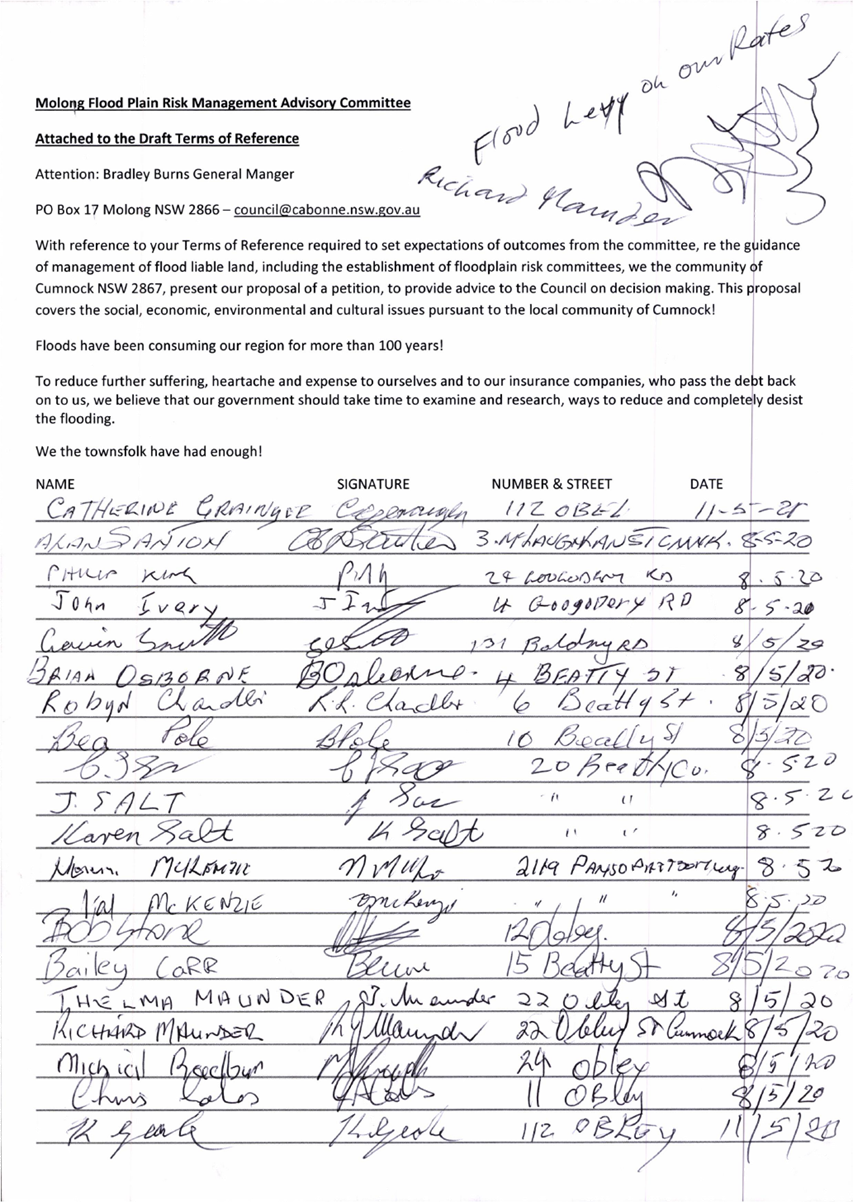 Flood Levy on our Rates
Richard Maunder
Molong Flood Plain Risk Management Advisory Committee
Attached to the Draft Terms of Reference
Attention: Bradley Burns General Manger
PO Box 17 Molong NSW 2866 – council@cabonne.nsw.gov.au
With reference to your Terms of Reference required to set expectations of outcomes from the committee, re the guidance
of management of flood liable land, including the establishment of floodplain risk committees, we the community of
Cumnock NSW 2867, present our proposal of a petition, to provide advice to the Council on decision making. This proposal
covers the social, economic, environmental and cultural issues pursuant to the local community of Cumnock!
Floods have been consuming our region for more than 100 years!
To reduce further suffering, heartache and expense to ourselves and to our insurance companies, who pass the debt back
on to us, we believe that our government should take time to examine and research, ways to reduce and completely desist
the flooding.
We the townsfolk have had enough!
NAME SIGNATURE NUMBER & STREET DATE
CATHERINE GRAINGER 112 OBEL 11-5-
ALAN 3. 8-5-20
PHILIP KING 8.5.20
John Ivery 4 Googodery RD 8-5-20
Gavin Smith RD /5/20
BRIAN OSBORNE BOsborne. 4 BEATTY ST 8/5/20.
Robyn Chandler R.L. Chandler 6 Beatty St. 8/5/20
Bea Pole BPole 10 Beatty St 8/5/20
20 8.520
J. SALT " " 8.5.20
Karen Salt K Salt " " 8.520
MCKENZIE 8.52
Val MCKENZIE " " " 8.5.20
Bob Stone 12 Obley. 8/5/2020
Bailey CARR 15 Beatty St 8/5/2020
THELMA MAUNDER T. Maunder 22 Obley St 8/5/20
RICHARD MAUNDER Maunder 22 Obley ST Cumnock 8/5/20
24 obley 8/5/20
Chris 11 OBley 8/5/20
K 112 OBLEY 11/5/20